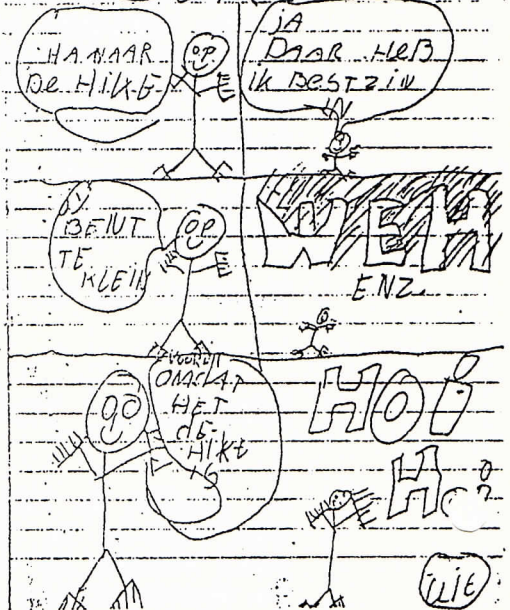 HA NAAR
De HiKE
JA
DAAR HEB
iK BEST ZiN
IN
JY
BENT
TE
KLEIN
WEH
ENZ.
OMDAT
HET
dE
HiKE
iS
HOi
Hoi
UiT